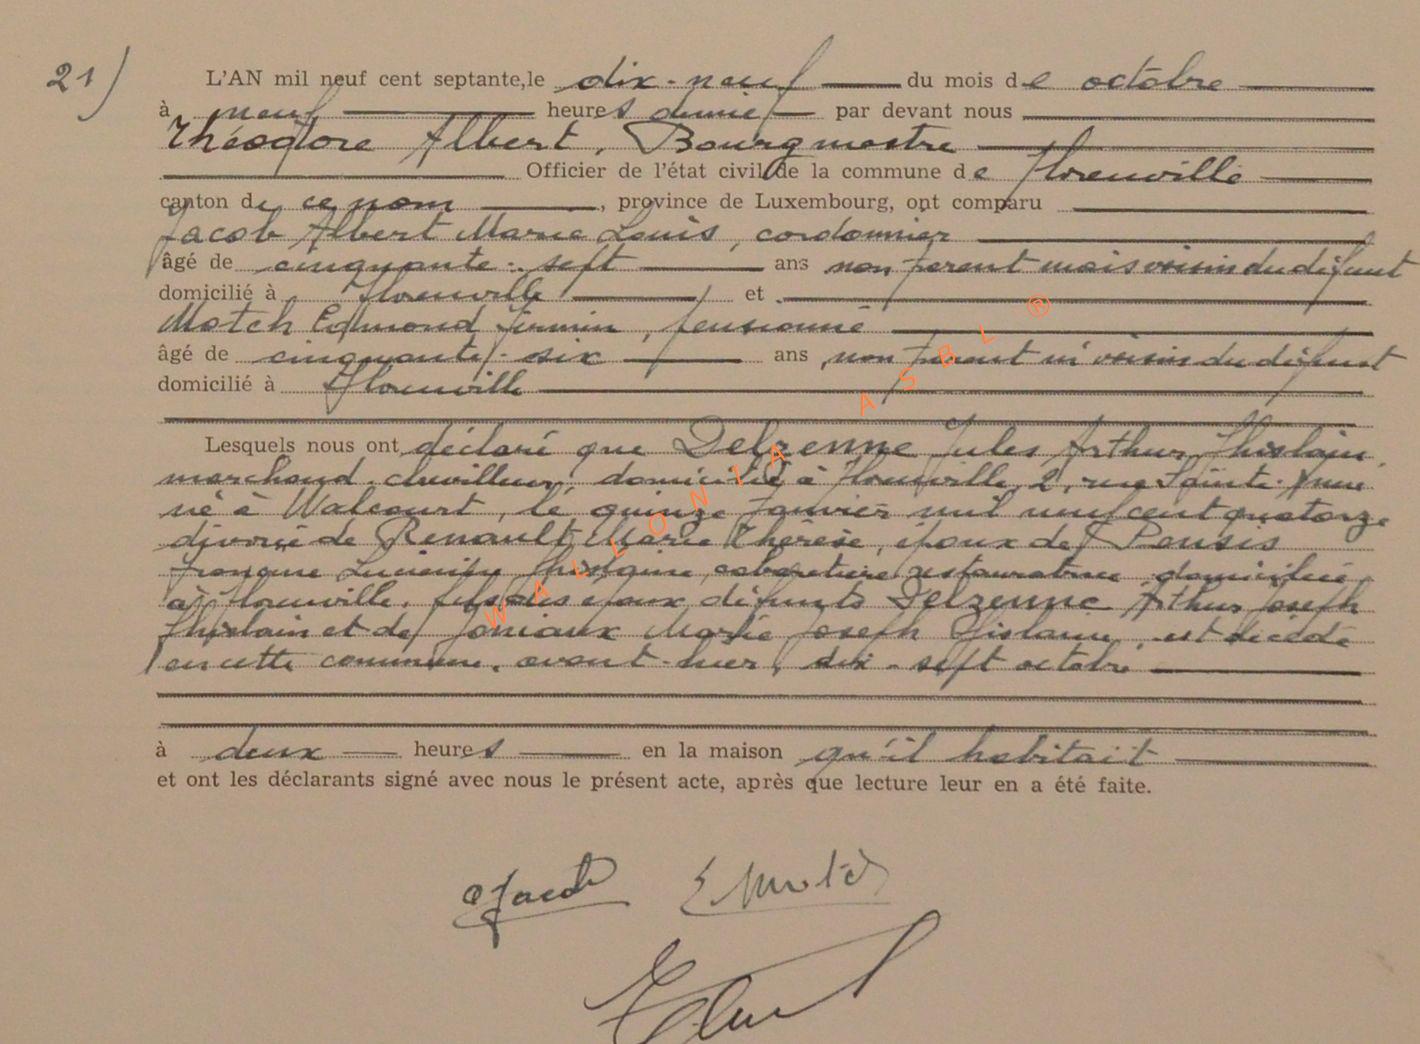 21)
L'AN mil neuf cent septante, le dix-neuf du mois de octobre
à neuf heures demie par devant nous
Théodore Albert, Bourgmestre
Officier de l'état civil de la commune de Florenville
canton de ce nom, province de Luxembourg, ont comparu
Jacob Albert Marie Louis, cordonnier
âgé de cinquante-sept ans non parent mais voisin du défunt
domicilié à Florenville et
Motch Edmond Firmin, pensionné
âgé de cinquante-six ans, non parent ni voisin du défunt
domicilié à Florenville
Lesquels nous ont déclaré que Delzenne Jules Arthur Ghislain
marchand chevilleur, domicilié à Florenville, 2, rue Sainte-Anne
né à Walcourt, le quinze janvier mil neuf cent quatorze
divorcé de Renault Marie Thérèse, époux de Pensis
Francine Ghislaine, cabaretière restauratrice domiciliée
à Florenville, fils des époux défunts Delzenne Arthur Joseph
Ghislain et de Joniaux Marie Joseph Gislaine, est décédé
en cette commune, avant-hier, dix-sept octobre
à deux heures en la maison qu'il habitait
et ont les déclarants signé avec nous le présent acte, après que lecture leur en a été faite.
Jacob E Motch
WALLONIA ASBL ®